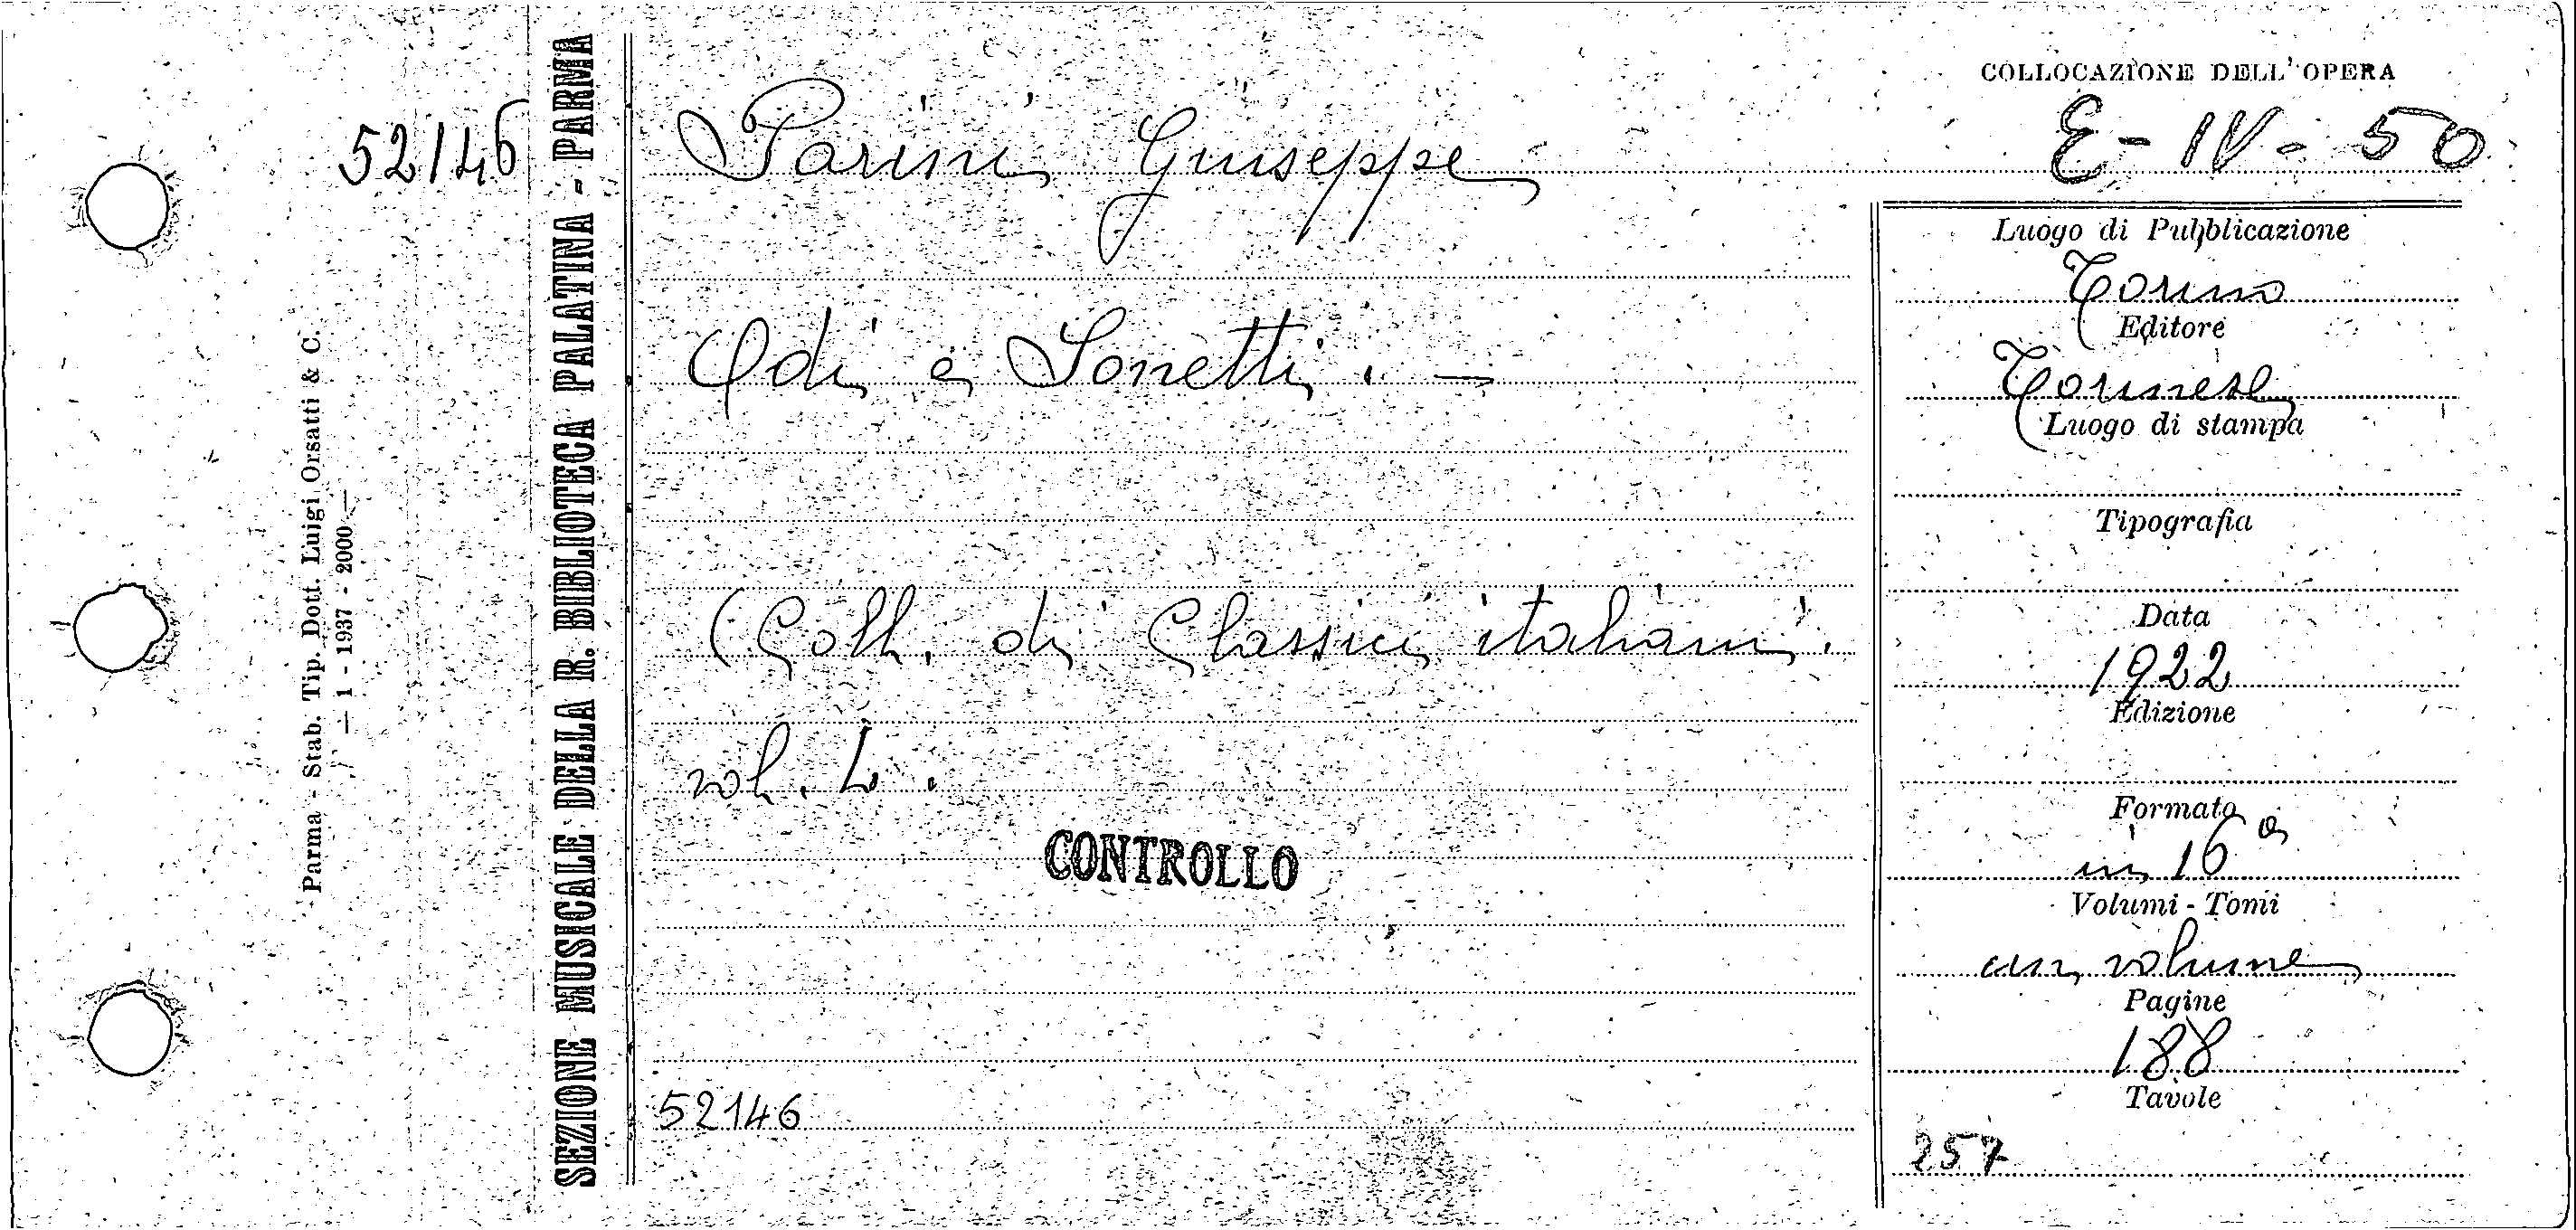 52146
Parma - Stab. Tip. Dott. Luigi Orsatti & C.
— 1 - 1937 - 2000 —
SEZIONE MUSICALE DELLA R. BIBLIOTECA PALATINA - PARMA
Parini Giuseppe
Odi e Sonetti. —
(Coll. di Classici italiani.
vol. 4.
CONTROLLO
52146
COLLOCAZIONE DELL'OPERA
E - IV - 50
Luogo di Pubblicazione
Torino
Editore
Torinese
Luogo di stampa
Tipografia
Data
1922
Edizione
Formato
in 16º
Volumi - Tomi
un volume
Pagine
188
Tavole
257